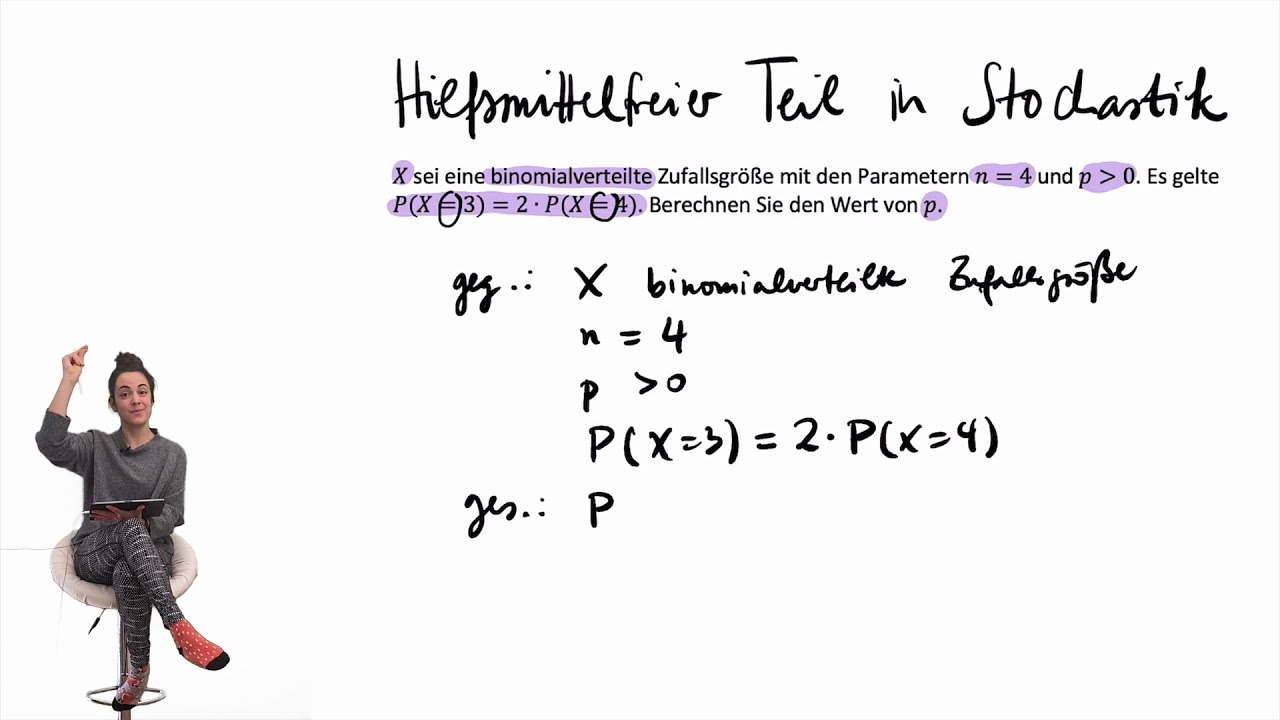 Hilfsmittelfreier Teil in Stochastik
X sei eine binomialverteilte Zufallsgröße mit den Parametern n = 4 und p > 0. Es gelte
P(X = 3) = 2 · P(X = 4). Berechnen Sie den Wert von p.
geg.: X binomialverteilte Zufallsgröße
n = 4
p > 0
P(X=3) = 2 · P(X=4)
ges.: P